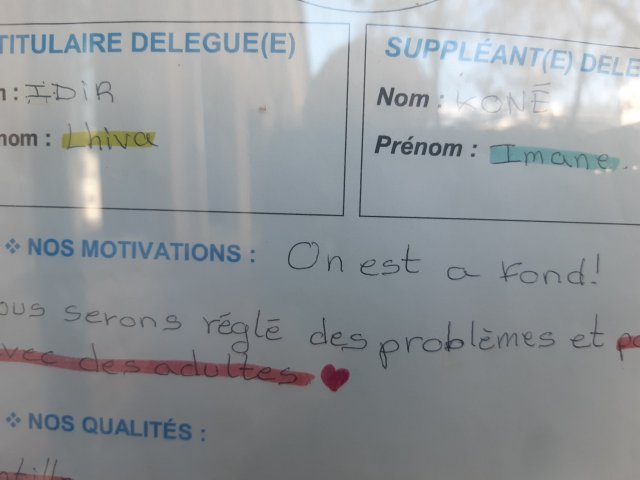 TITULAIRE DELEGUE(E)
SUPPLÉANT(E) DELE
: IDIR
Nom : KONÉ
nom : Lhiva
Prénom : Imane..
❖ NOS MOTIVATIONS : On est a fond!
ous serons réglé des problèmes et
avec des adultes ♥
❖ NOS QUALITÉS :